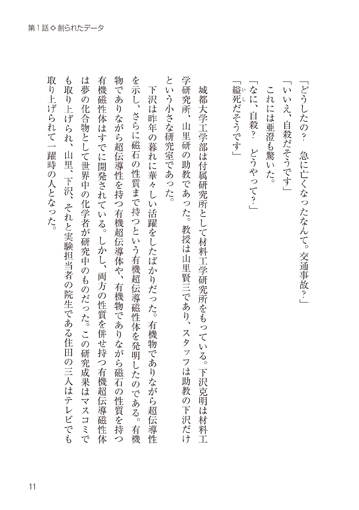 第1話◇創られたデータ
「どうしたの? 急に亡くなったなんて。交通事故?」
「いいえ、自殺だそうです」
これには亜澄も驚いた。
「なに、自殺? どうやって?」
「縊死だそうです」
城都大学工学部は付属研究所として材料工学研究所をもっている。下沢克明は材料工
学研究所、山里研の助教であった。教授は山里賢三であり、スタッフは助教の下沢だけ
という小さな研究室であった。
下沢は昨年の暮れに華々しい活躍をしたばかりだった。有機物でありながら超伝導性
を示し、さらに磁石の性質まで持つという有機超伝導磁性体を発明したのである。有機
物でありながら超伝導性を持つ有機超伝導体や、有機物でありながら磁石の性質を持つ
有機磁性体はすでに開発されている。しかし、両方の性質を併せ持つ有機超伝導磁性体
は夢の化合物として世界中の化学者が研究中のものだった。この研究成果はマスコミで
も取り上げられ、山里、下沢、それと実験担当者の院生である住田の三人はテレビでも
取り上げられて一躍時の人となった。
11